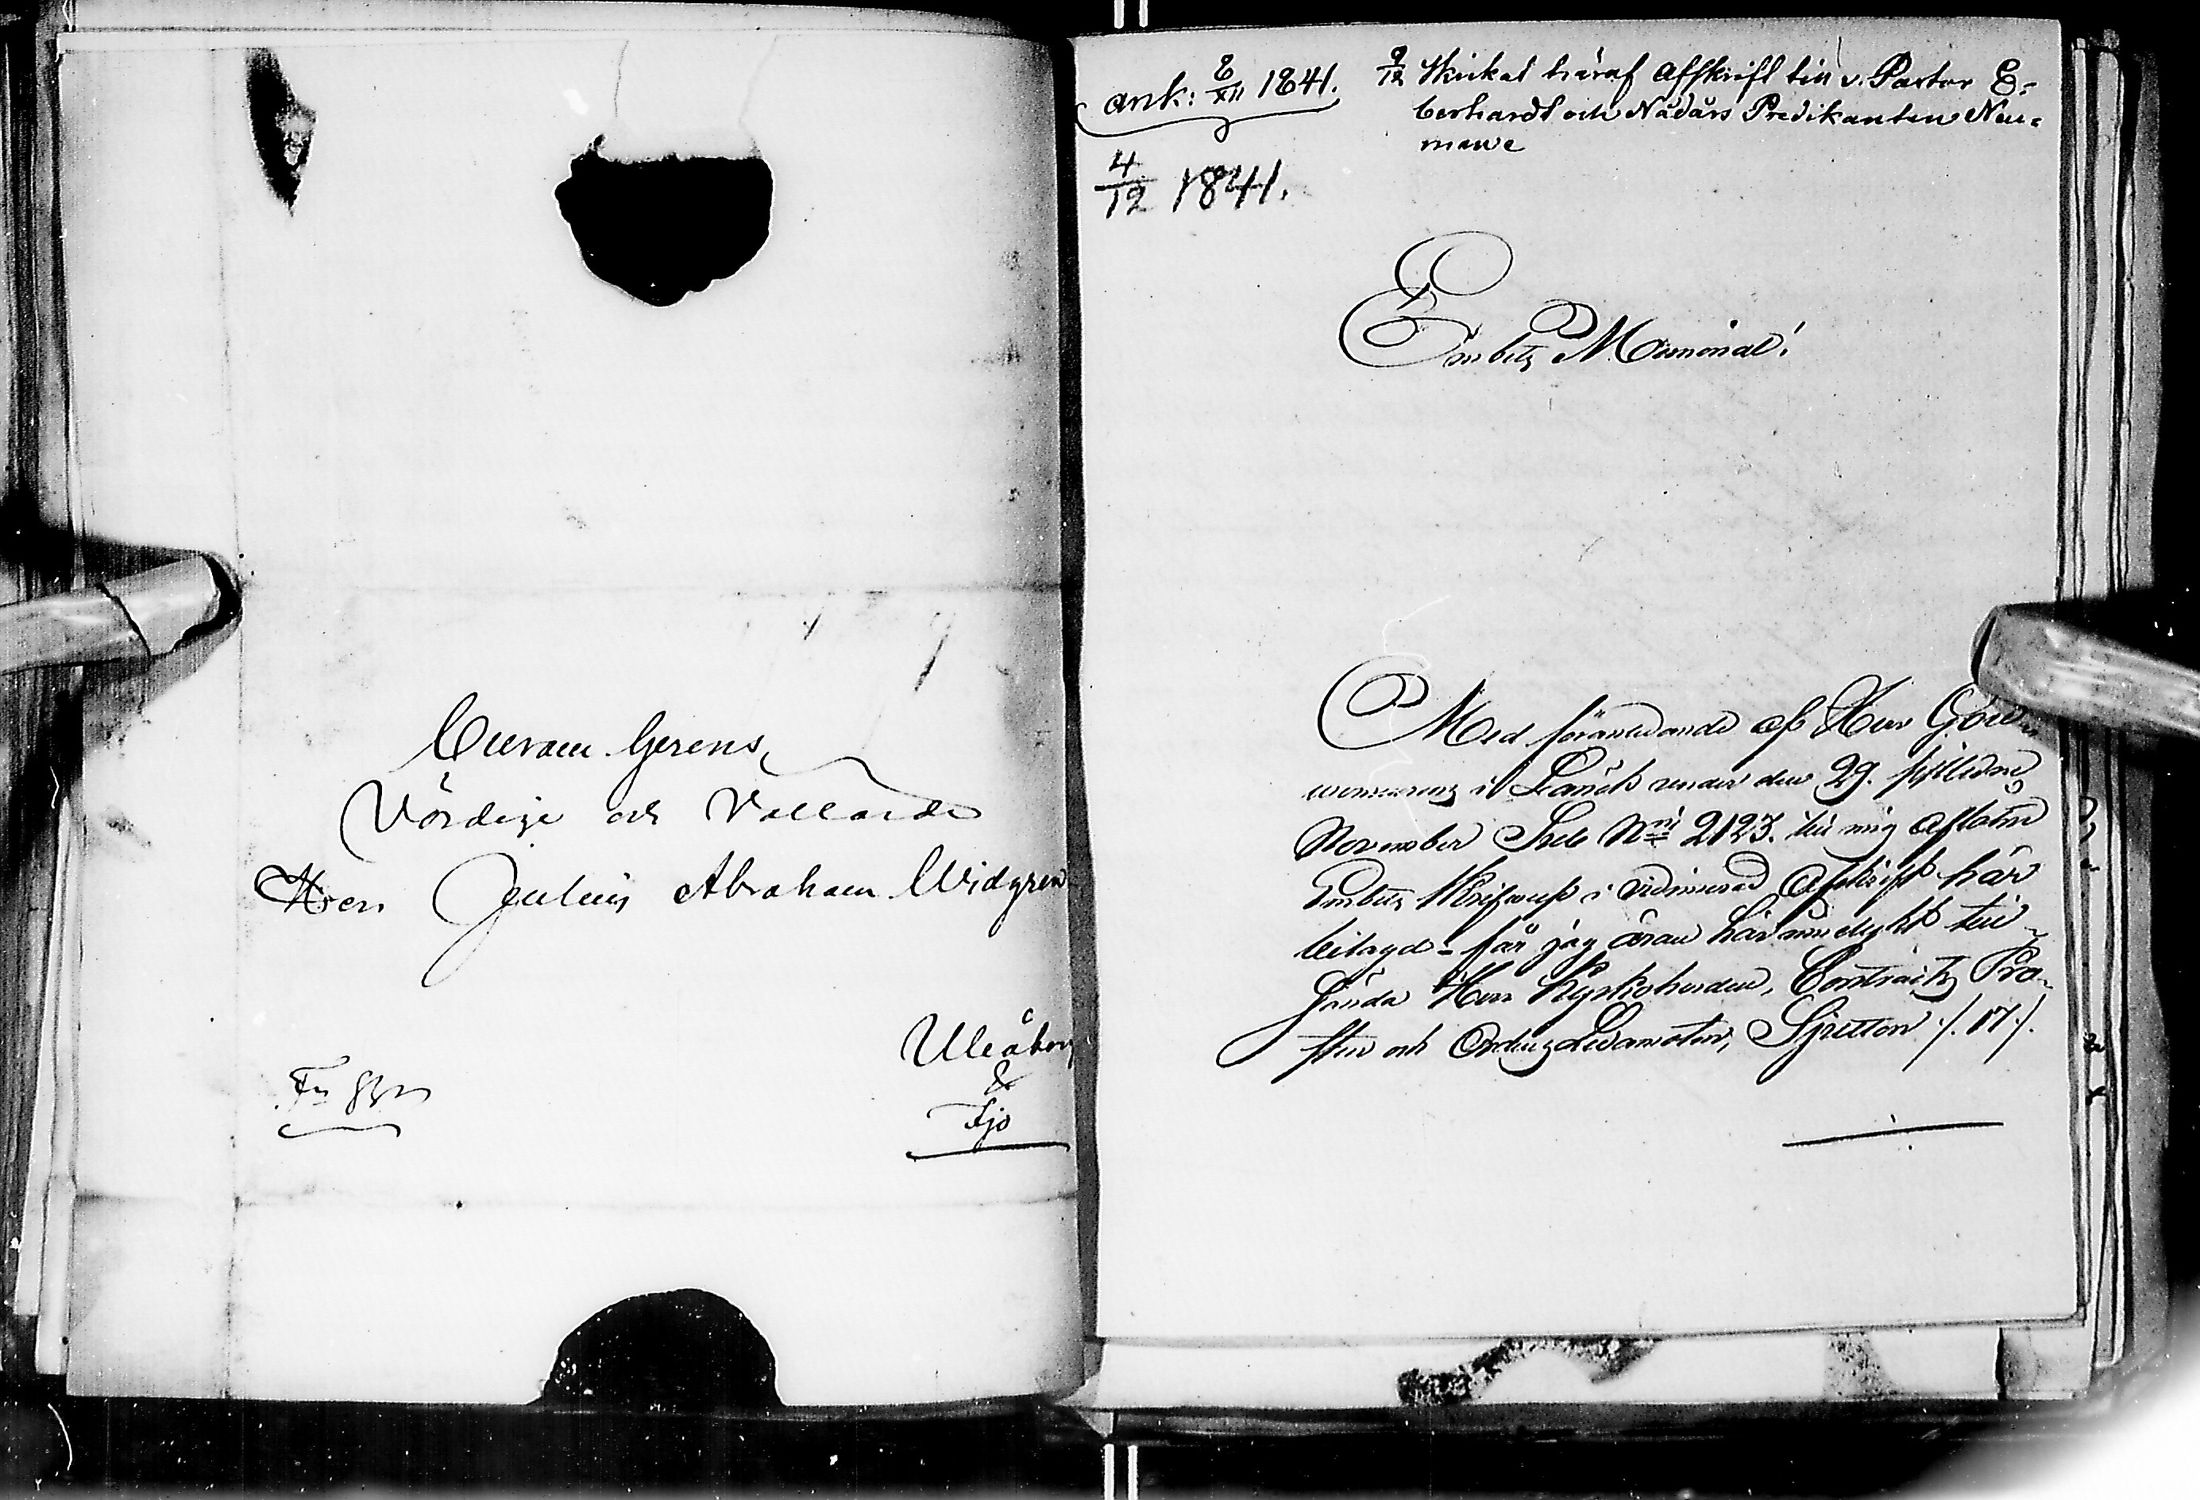 Curam Gerens,
Vördige och Vällärde
Herr Julius Abraham Widgren
Uleåborg
&
Ijo
ank: 8/XII 1841.
9/12 Skickat häraf Affskrift till v. Pastor E-
berhardt och Nådårs Predikanten Neu-
mane
4/12 1841.
Embets Memorial!
Med föranledande af Herr Gou-
verneurens i Länet under den 29. sistledne
November Sub Nri 2123. till mig aflåtne
Embets Skrifvelse i vidimerad Afskrift här
bilagd - får jag äran härmedelst till-
sända Herr Kyrkoherden, Contracts Pro-
sten och Ordens Ledamoten, Sjutton /. 17 /.